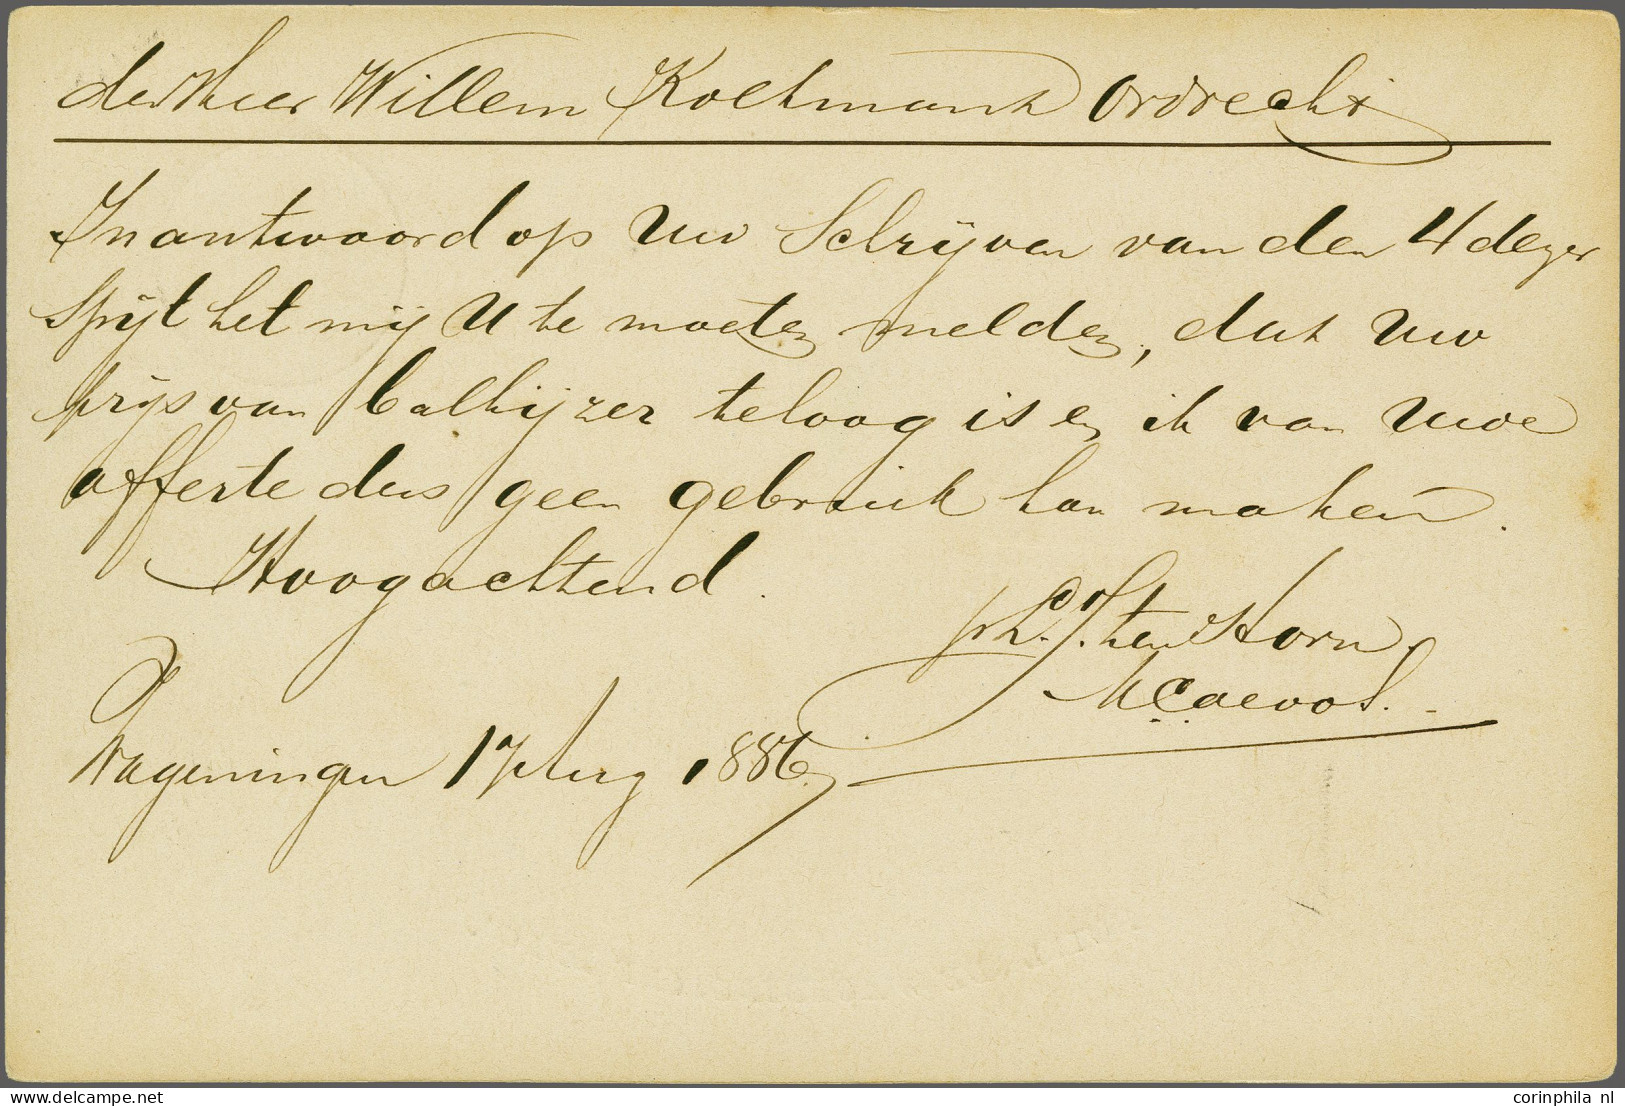 den Heer Willem Koelman Dordrecht
In antwoord op Uw Schrijven van den 4 dezer
spijt het mij U te moeten melden, dat Uw
prijs van balkijzer te hoog is en ik van Uwe
offerte dus geen gebruik kan maken.
Hoogachtend.
ten Horn
Wageningen 17 Aug 1886
corinphila nl